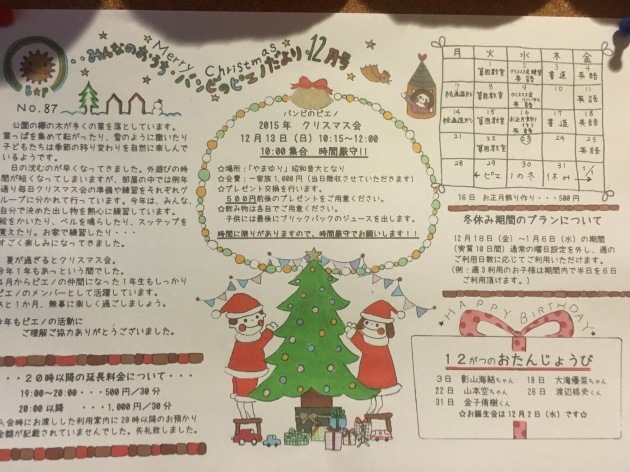 みんなのおうち・バンビのピエノだより・12月号
Merry Christmas
B & P
NO.87
公園の欅の木が多くの葉を落としています。
葉っぱを集めて転がしたり、雪のように撒いたり
子どもたちは季節の移り変わりを自然に楽しんで
いるようです。
日の沈むのが早くなってきました。外遊びの時
間が短くなってしまいますが、部屋の中では例年
通り毎日クリスマス会の準備や練習をそれぞれグ
ループに分かれて行っています。今年は、みんな
自分で決めた出し物を熱心に練習しています。
絵をかいたり、ベルを鳴らしたり、スッテップを
覚えたり。お家で練習したり・・・
すごく楽しみになってきました。
夏が過ぎるとクリスマス会。
今年1年もあっという間でした。
4月からピエノの仲間になった1年生もしっかり
ピエノのメンバーとして活躍しています。
あと1か月、無事に楽しく過ごしましょう。
今年もピエノの活動に
ご理解ご協力ありがとうございました。
・・・20時以降の延長料金について・・・
19:00~20:00 ・・・500円/30分
20:00以降 ・・・・1,000円/30分
入会時にお渡しした利用案内に20時以降のお預かり
金額が記載されていませんでした。失礼致しました。
バンビのピエノ
2015年 クリスマス会
12月13日(日)10:15~12:00
10:00集合 時間厳守!!
☆場所:「やまゆり」昭和音大となり
☆会費:一家族1,000円(当日徴収させていただきます)
☆プレゼント交換を行います。
500円前後のプレゼントをご用意ください。
☆飲み物は各自でご用意ください。
子供には最後にブリックパックのジュースを出します。
時間に限りがありますので、時間厳守でお願いします!!
月 火 水 木 金
1 算田教室
2 クリスマス会練習 英語
3 書道
4 英語
7 絵画造形
8 算田教室
9 クリスマス会リハーサル 英語
10
11 英語
14 絵画造形
15 算田教室
16 お正月飾り作り 英語
17 書道
18 英語
21
22 算田教室
23
24
25 英語
28 29 30 31 1/1
←ピエノ休み→
16日 お正月飾り作り・・・500円
冬休み期間のプランについて
12月18日(金)~1月6日(水)の期間
(実質10日間)通常の曜日設定を外し、週の
ご利用日数に応じてご利用いただけます。
(例:週3利用のお子様は期間内で半日を6日
ご利用できます。)
HAPPY BIRTHDAY
12がつのおたんじょうび
3日 影山海結ちゃん 18日 大滝優菜ちゃん
22日 山本空ちゃん 26日 渡辺柊史くん
31日 金子侑樹くん
☆お誕生会は12月2日(水)です☆